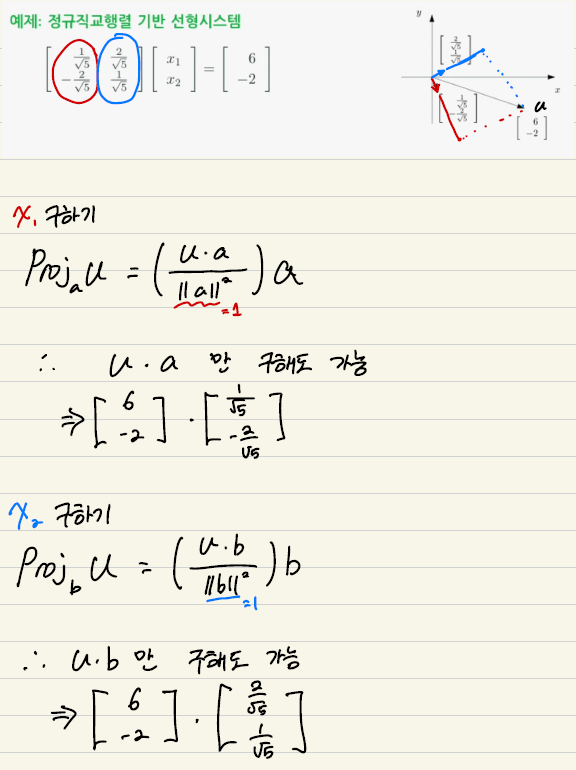 예제: 정규직교행렬 기반 선형시스템
[ 1/√5 2/√5 ; -2/√5 1/√5 ] [ x₁ ; x₂ ] = [ 6 ; -2 ]
y
[ 2/√5 ; 1/√5 ]
x
u
[ 1/√5 ; -2/√5 ]
[ 6 ; -2 ]
x₁ 구하기
Projₐu = ( u·a / ||a||² ) a
=1
∴ u·a 만 구해도 가능
⇒ [ 6 ; -2 ] · [ 1/√5 ; -2/√5 ]
x₂ 구하기
Proj_b u = ( u·b / ||b||² ) b
=1
∴ u·b 만 구해도 가능
⇒ [ 6 ; -2 ] · [ 2/√5 ; 1/√5 ]